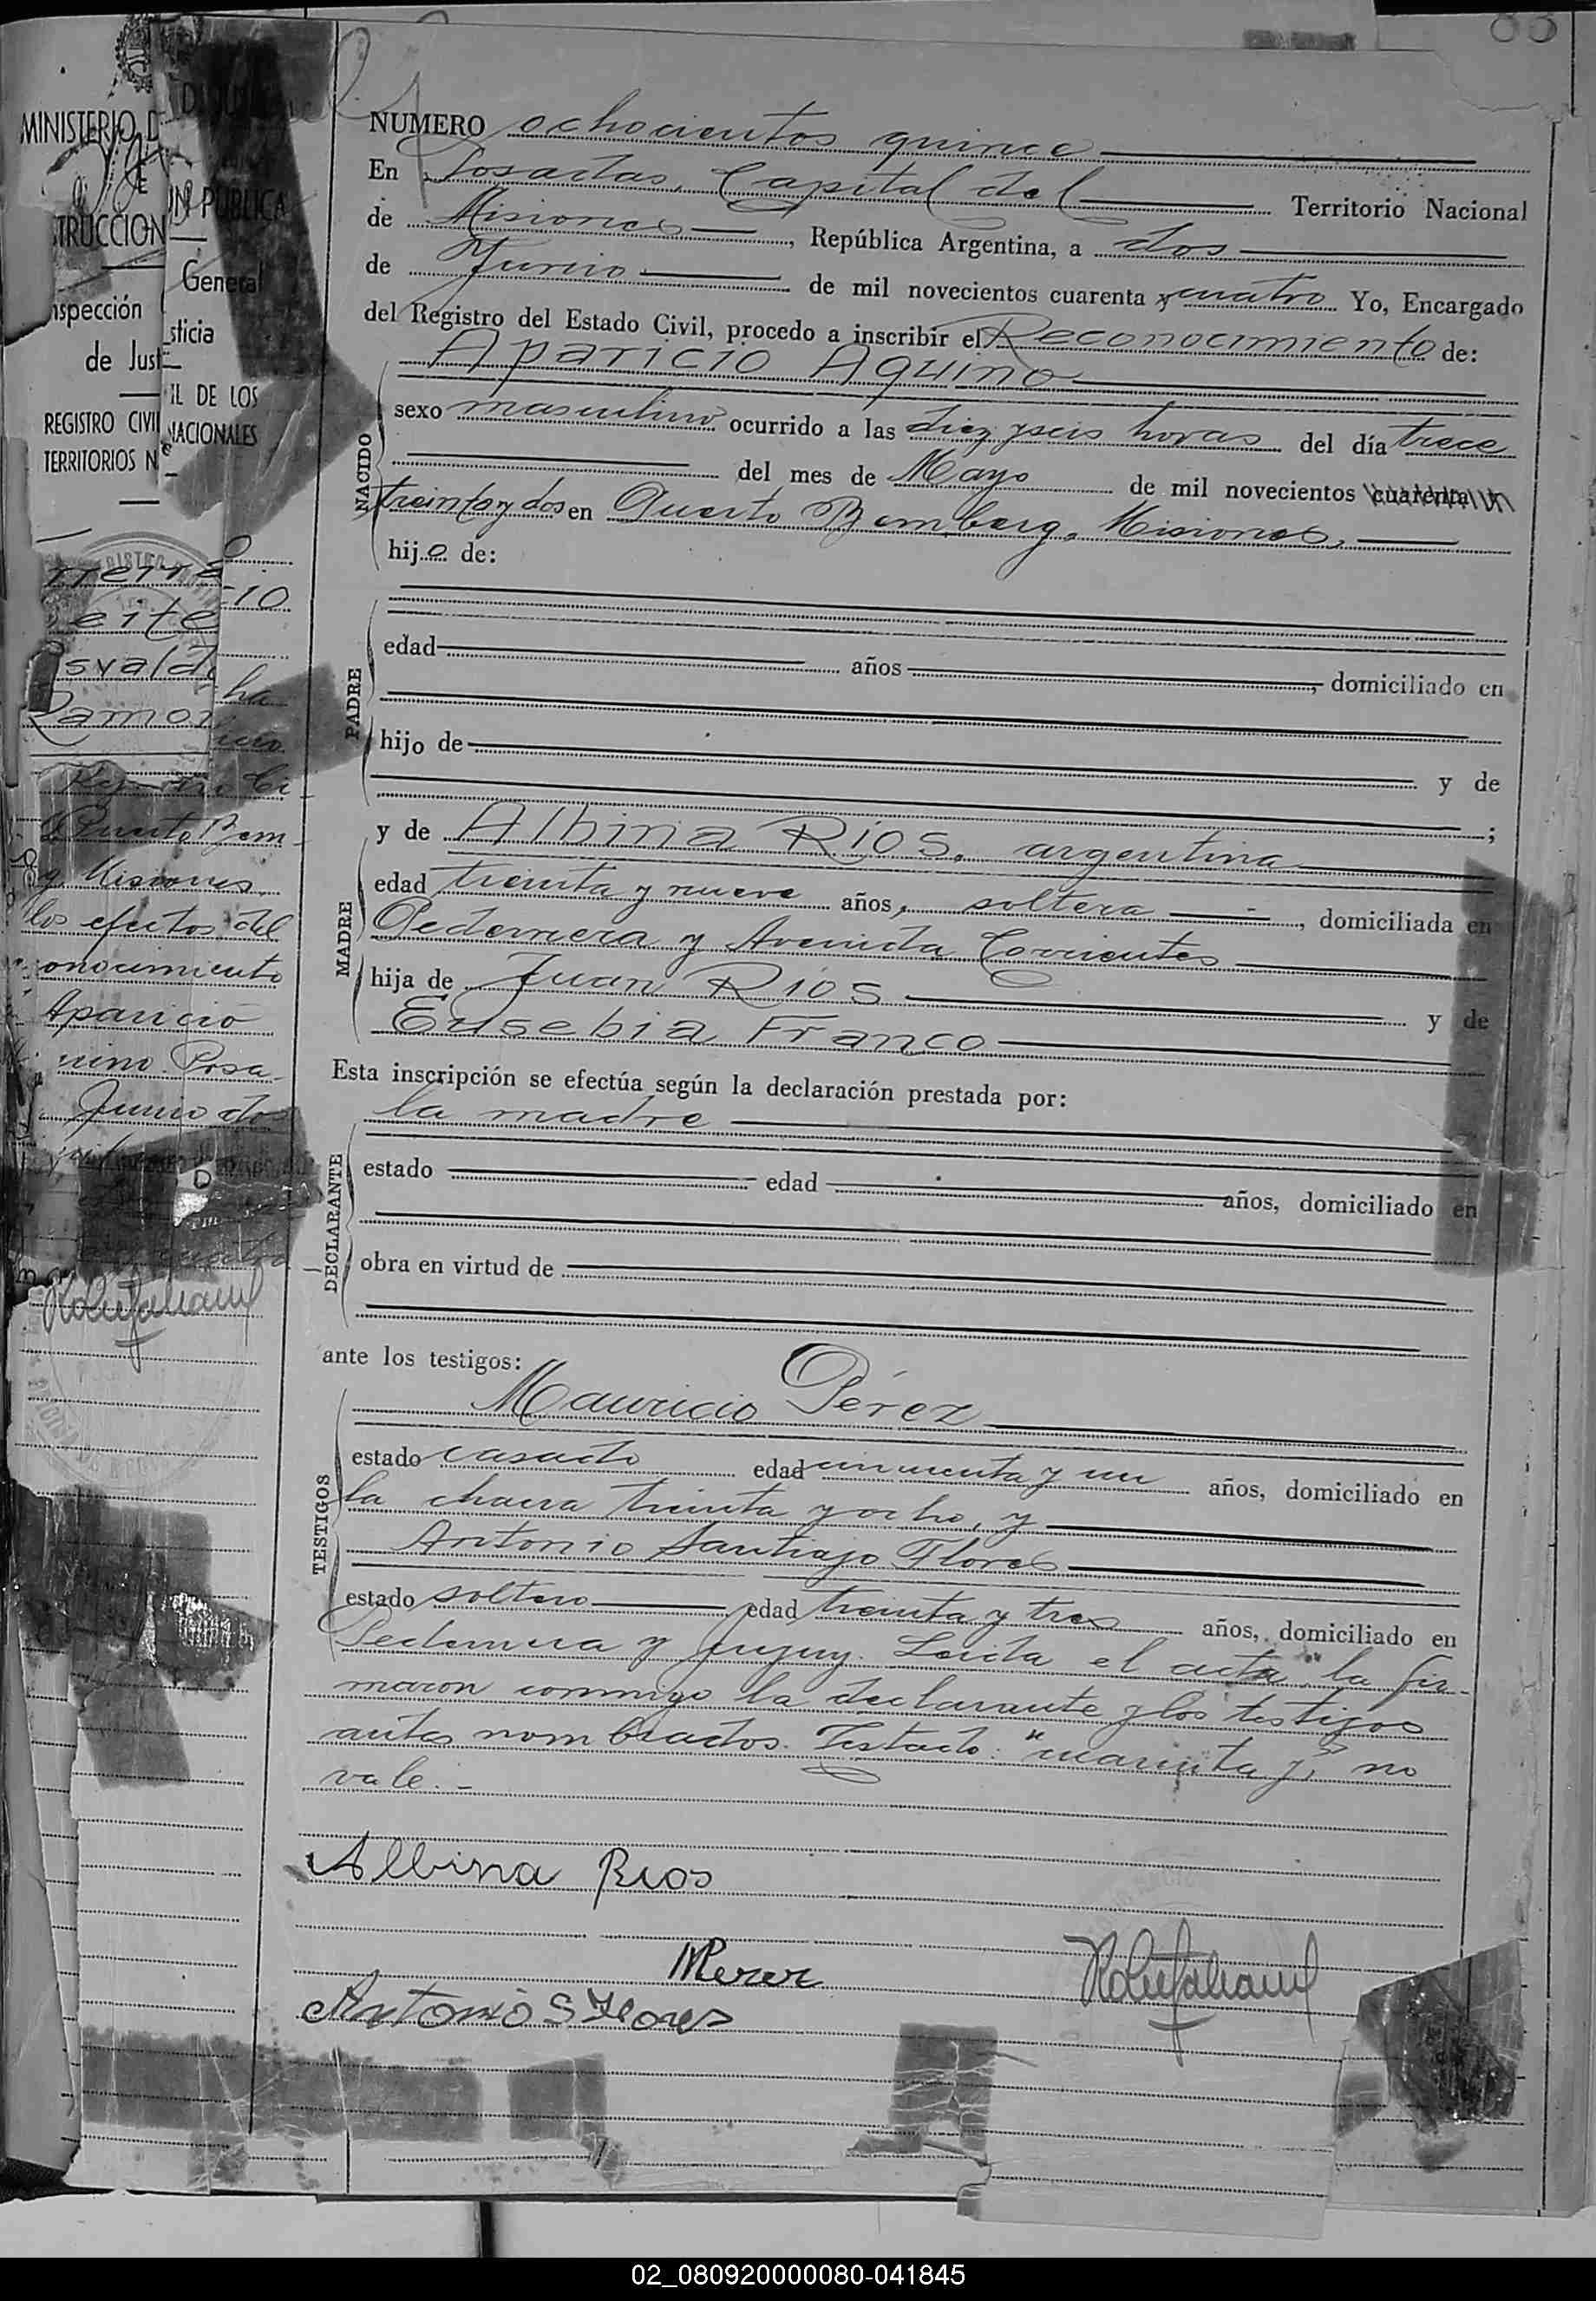 83
MINISTERIO D
E
STRUCCION
N PUBLICA
General
nspección
sticia
de Just
IL DE LOS
REGISTRO CIVI
NACIONALES
TERRITORIOS N
NUMERO ochocientos quince
En Posadas, Capital del Territorio Nacional
de Misiones, República Argentina, a dos
de Junio de mil novecientos cuarenta y cuatro Yo, Encargado
del Registro del Estado Civil, procedo a inscribir el Reconocimiento de:
Aparicio Aquino
NACIDO
sexo masculino ocurrido a las diez y seis horas del día trece
del mes de Mayo de mil novecientos cuarenta y
treinta y dos en Puerto Bemberg, Misiones,
hijo de:
PADRE
edad años, domiciliado en
hijo de y de
;
MADRE
y de Albina Ríos, argentina
edad treinta y nueve años, soltera, domiciliada en
Pedernera y Avenida Corrientes
hija de Juan Ríos y de
Eusebia Franco
Esta inscripción se efectúa según la declaración prestada por:
la madre
DECLARANTE
estado edad años, domiciliado en
obra en virtud de
ante los testigos:
Mauricio Pérez
TESTIGOS
estado casado edad cincuenta y un años, domiciliado en
la chacra treinta y ocho, y
Antonio Santiago Flores
estado soltero edad treinta y tres años, domiciliado en
Pedernera y Jujuy. Leída el acta, la fir-
maron conmigo la declarante y los testigos
antes nombrados. Testado: "cuarenta y", no
vale.-
Albina Rios
MPerez
Antonio S Flores
eite
svald
Ramon
Puerto Bem-
g Misiones,
los efectos del
onocimiento
Aparicio
uino. Posa-
Junio do
02_080920000080-041845